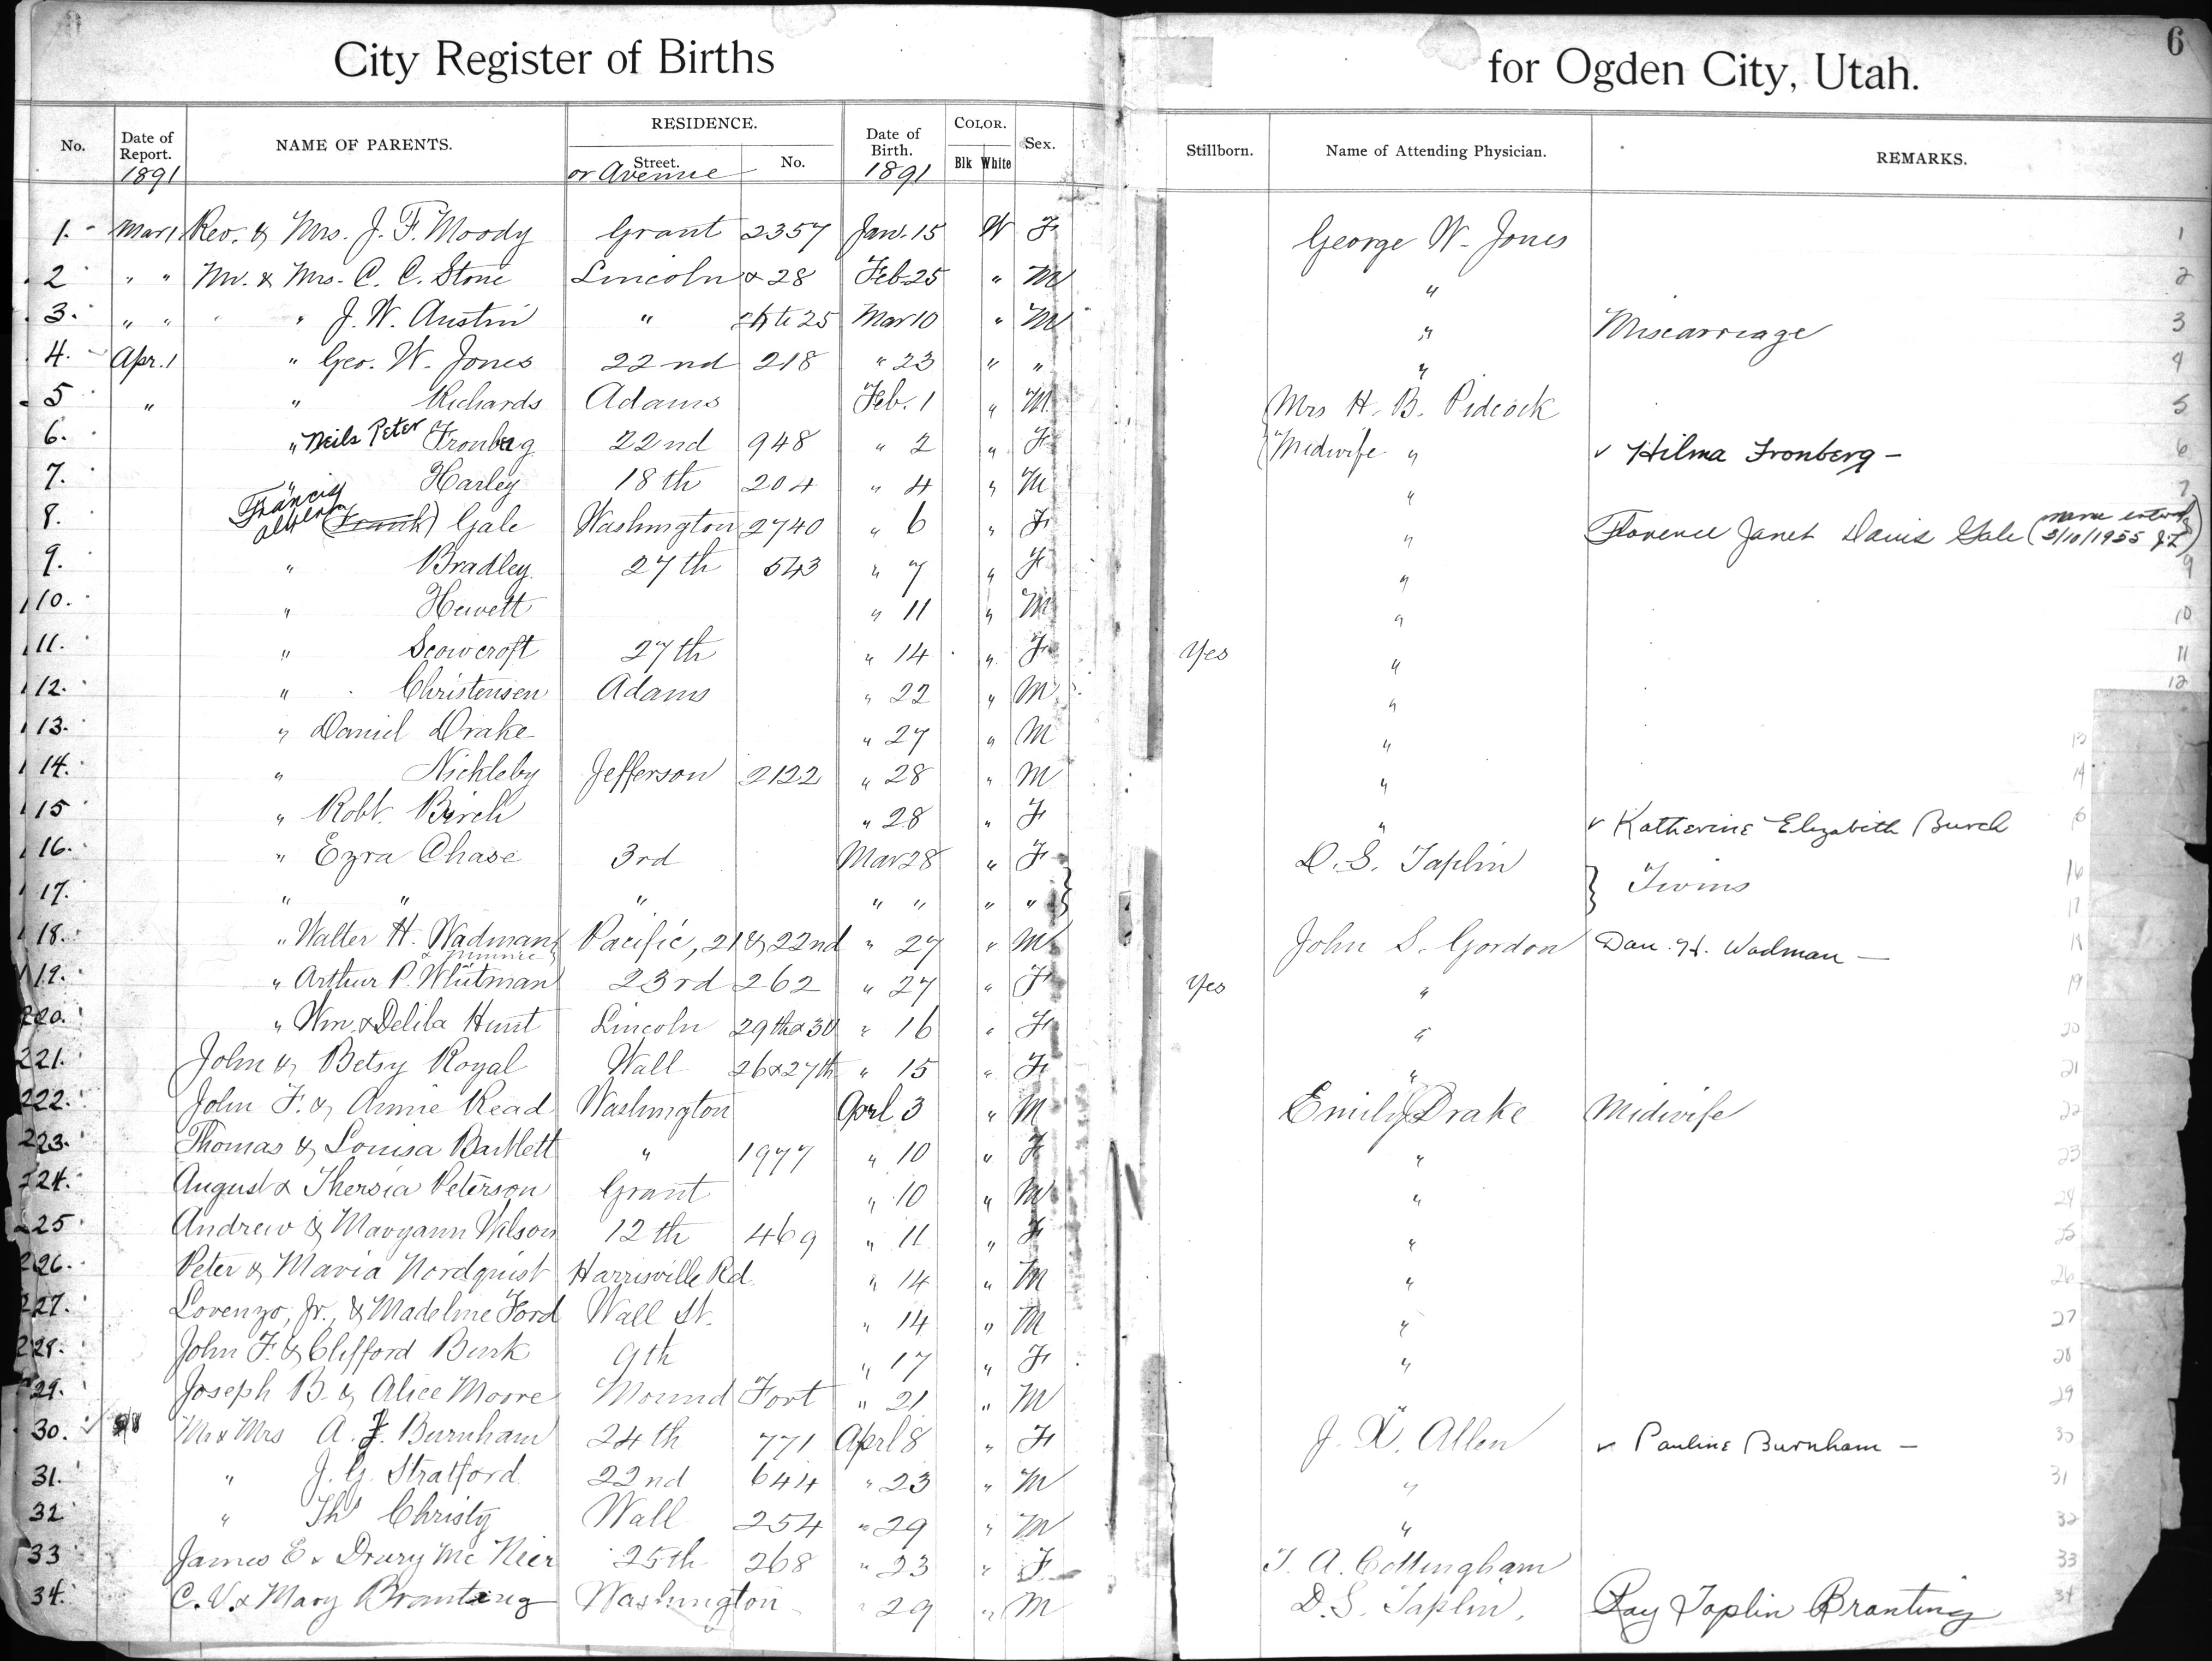 City Register of Births for Ogden City, Utah. 6
No. Date of Report. 1891 NAME OF PARENTS. RESIDENCE. Street. or Avenue No. Date of Birth. 1891 COLOR. Blk White Sex. Stillborn. Name of Attending Physician. REMARKS.
1. Mar 1 Rev. & Mrs. J. F. Moody Grant 2357 Jan. 15 W F George W. Jones 1
2 " " Mr. & Mrs. C. C. Stone Lincoln & 28 Feb 25 " M " 2
3. " " " " J. W. Austin " 24 to 25 Mar 10 " M " Miscarriage 3
4. Apr. 1 " Geo. W. Jones 22nd 218 " 23 " " " 4
5 " " Richards Adams Feb. 1 " M Mrs H. B. Pidcock 5
6. " Neils Peter Fronberg 22nd 948 " 2 " F Midwife " ✓ Hilma Fronberg - 6
7. " Harley 18th 204 " 4 " M " 7
8. Francis Albert (Frank) Gale Washington 2740 " 6 " F " Florence Janet Davis Gale (name entered 3/10/1955 JL) 8
9. " Bradley 27th 543 " 7 " F " 9
10. " Hewett " 11 " M " 10
11. " Scowcroft 27th " 14 " F Yes " 11
12. " Christensen Adams " 22 " M " 12
13. " Daniel Drake " 27 " M " 13
14. " Nickleby Jefferson 2122 " 28 " M " 14
15 " Robt. Burch " 28 " F " ✓ Katherine Elizabeth Burch 15
16. " Ezra Chase 3rd Mar 28 " F D. S. Taplin } Twins 16
17. " " " " " " " } 17
18. " Walter H. Wadman Pacific, 21 & 22nd " 27 " M John S. Gordon Dan. H. Wadman - 18
& Minnie
19. " Arthur P. Whitman 23rd 262 " 27 " F Yes " 19
20. " Wm. & Delila Hunt Lincoln 29th & 30 " 16 " F " 20
221. John & Betsy Royal Wall 26 & 27th " 15 " F " 21
222. John F. & Annie Read Washington Aprl 3 " M Emily Drake Midwife 22
223. Thomas & Louisa Bartlett " 1977 " 10 " F " 23
224. August & Thersia Peterson Grant " 10 " M " 24
225 Andrew & Maryann Wilson 12th 469 " 11 " F " 25
226. Peter & Maria Nordquist Harrisville Rd. " 14 " M " 26
227. Lorenzo, Jr., & Madeline Ford Wall St. " 14 " M " 27
228. John F. & Clifford Burk 9th " 17 " F " 28
29. Joseph B. & Alice Moore Mound Fort " 21 " M " 29
30. ✓ Mr & Mrs A. F. Burnham 24th 771 Aprl 8 " F J. X. Allen ✓ Pauline Burnham - 30
31. " J. G. Stratford 22nd 644 " 23 " M " 31
32 " Thos Christy Wall 254 " 29 " M " 32
33 James E & Drury Mc Neer 25th 268 " 23 " F T. A. Cottingham 33
34. C. V. & Mary Branting Washington " 29 " M D. S. Taplin. Ray Taplin Branting 34